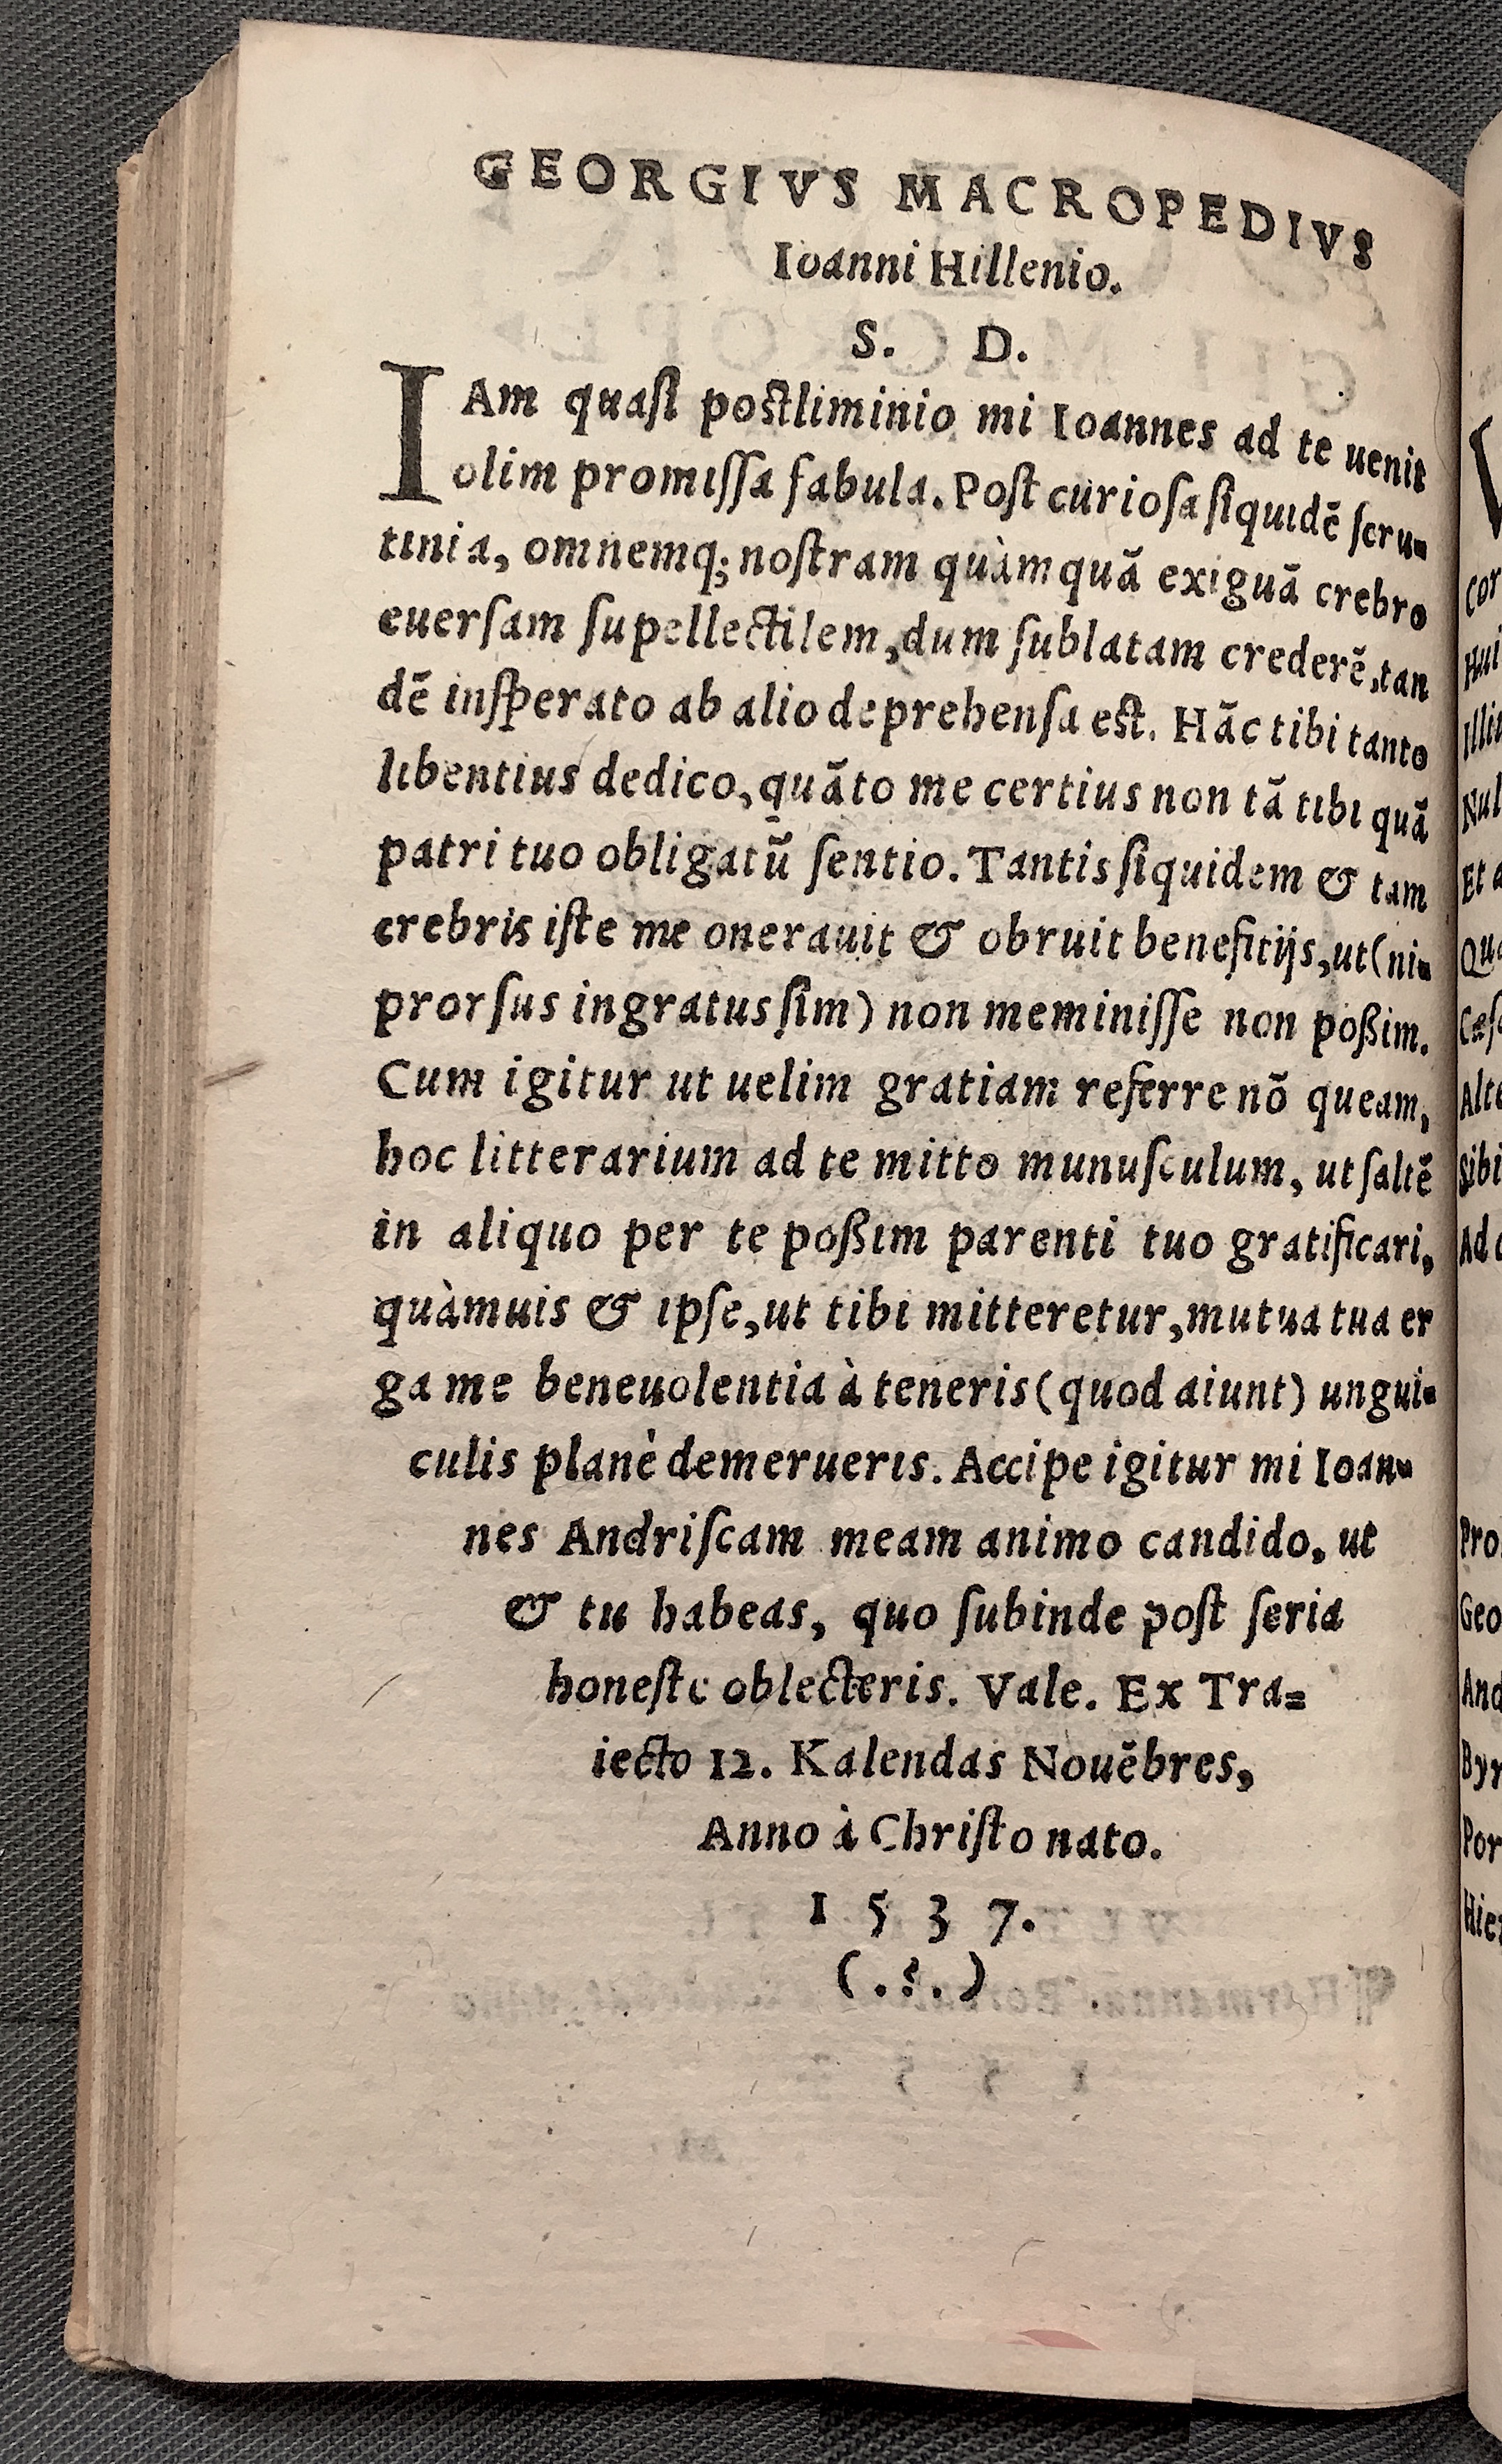 GEORGIVS MACROPEDIVS
Ioanni Hillenio.
S. D.
IAm quasi postliminio mi Ioannes ad te uenit
olim promissa fabula. Post curiosa siquidē scru-
tinia, omnemq; nostram quàmquā exiguā crebro
euersam supellectilem, dum sublatam crederē, tan
dē insperato ab alio deprehensa est. Hāc tibi tanto
libentius dedico, quāto me certius non tā tibi quā
patri tuo obligatū sentio. Tantis siquidem & tam
crebris iste me onerauit & obruit beneficijs, ut (ni-
prorsus ingratus sim) non meminisse non poßim.
Cum igitur ut uelim gratiam referre nō queam,
hoc litterarium ad te mitto munusculum, ut saltē
in aliquo per te poßim parenti tuo gratificari,
quàmuis & ipse, ut tibi mitteretur, mutua tua er
ga me beneuolentia à teneris (quod aiunt) ungui-
culis planè demerueris. Accipe igitur mi Ioan-
nes Andriscam meam animo candido, ut
& tu habeas, quo subinde post seria
honeste oblecteris. Vale. Ex Tra=
iecto 12. Kalendas Nouēbres,
Anno à Christo nato.
1537.
(.:.)
V
cor
Hui
Illi
Nul
Et a
Qu
Cæs
Alt
Sibi
Ad
Pro
Geo
And
Byr
Por
Hie